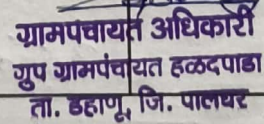 ग्रामपंचायत अधिकारी
ग्रुप ग्रामपंचायत हळदपाडा
ता. डहाणू, जि. पालघर